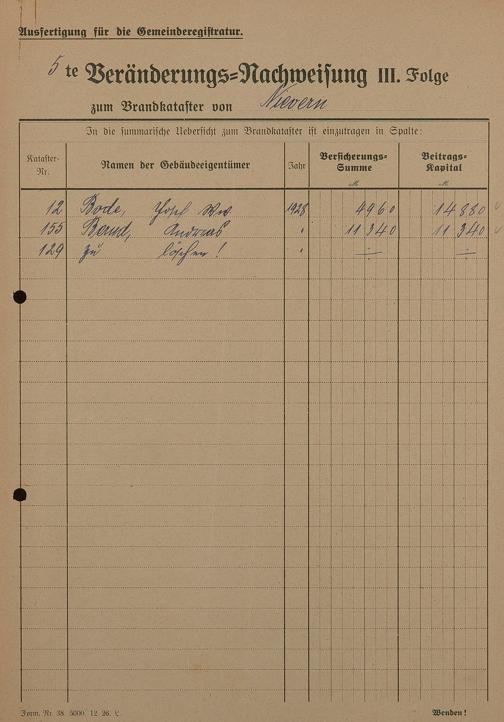 Ausfertigung für die Gemeinderegistratur.
5 te Veränderungs=Nachweisung III. Folge
zum Brandkataster von Nievern
In die summarische Uebersicht zum Brandkataster ist einzutragen in Spalte:
Kataster-Nr. Namen der Gebäudeeigentümer Jahr Versicherungs-Summe Beitrags-Kapital
M. M.
12 Bode, Josef Ww 1928 4960 14880
155 Bernd, Andreas " 11340 11340
129 zu löschen! " ÷ ÷
Form. Nr. 38. 5000. 12. 26. Wenden!